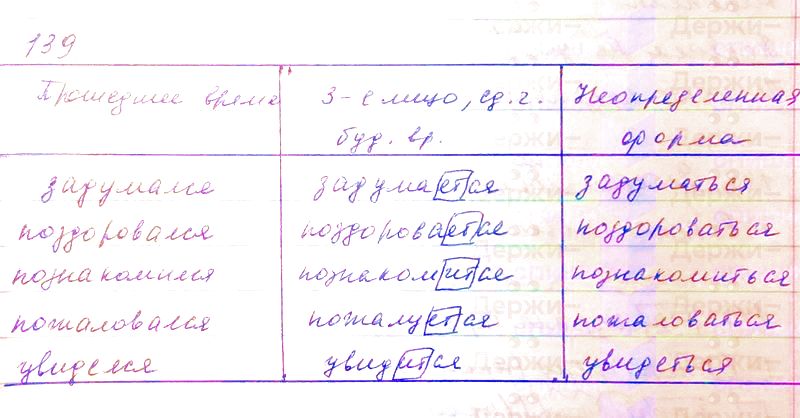 139
Прошедшее время 3-е лицо, ед. ч. Неопределенная
буд. вр. форма
задумался задумается задуматься
поздоровался поздоровается поздороваться
познакомился познакомится познакомиться
пожаловался пожалуется пожаловаться
увиделся увидится увидеться